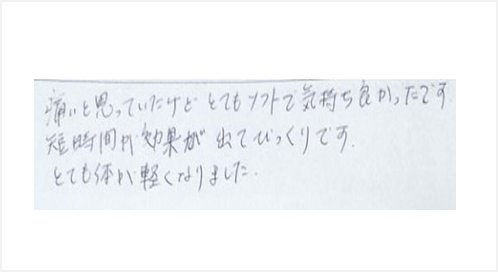 痛いと思っていたけど とてもソフトで気持ち良かったです
短時間が効果が出てびっくりです.
とても体が軽くなりました.